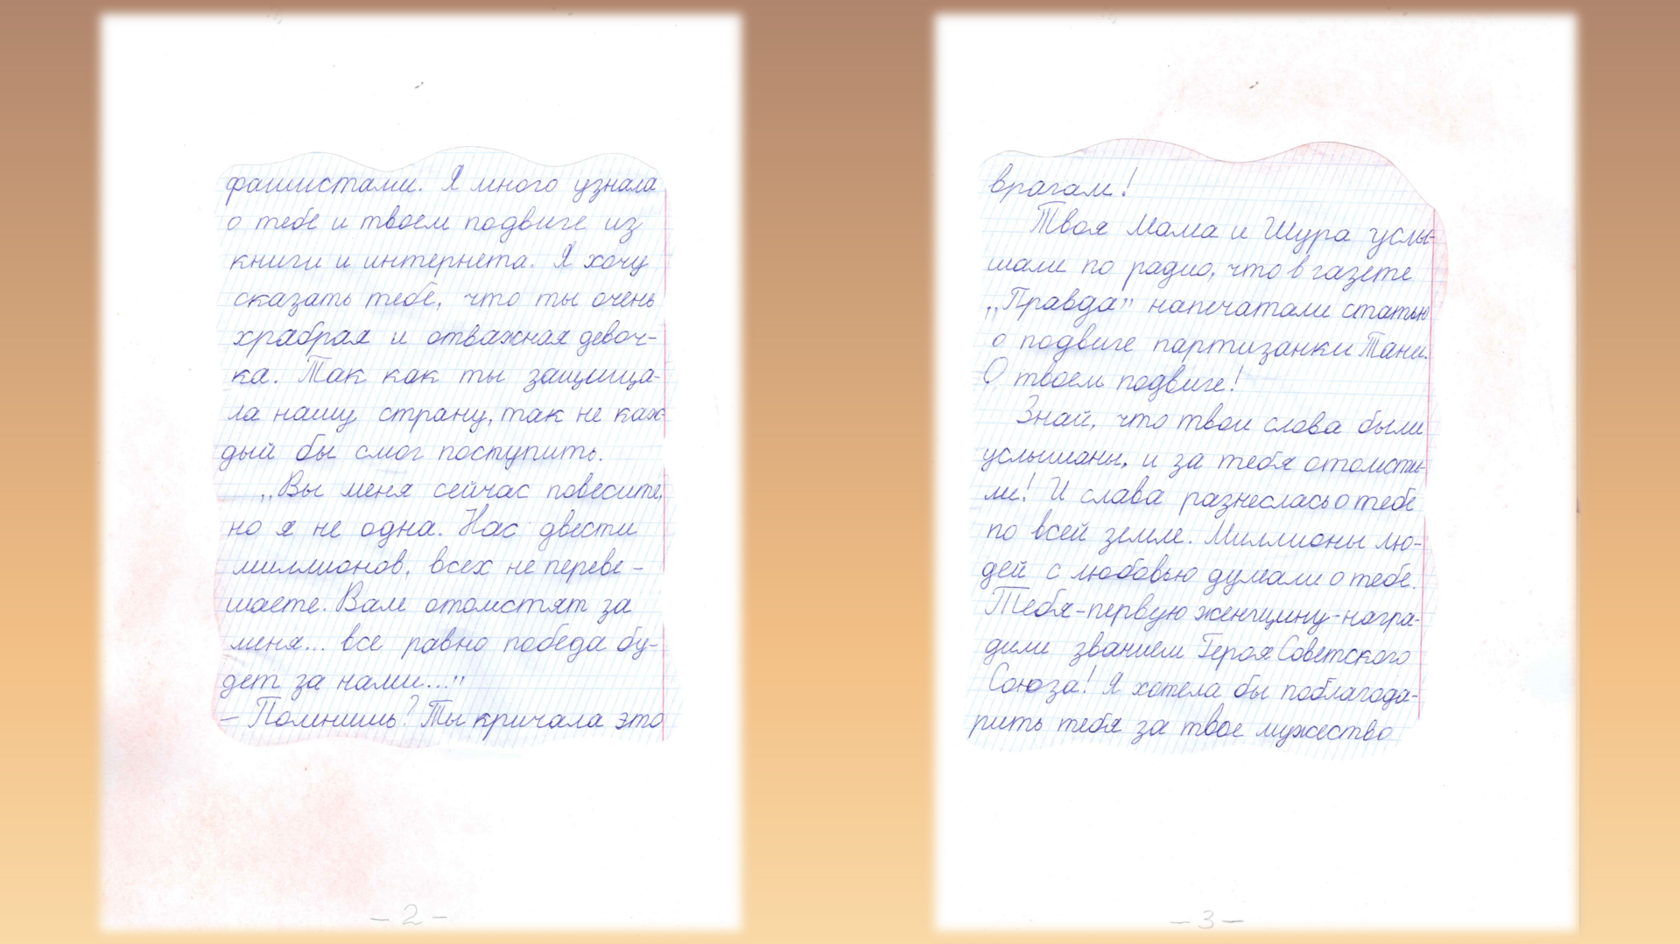 фашистами. Я много узнала
о тебе и твоем подвиге из
книги и интернета. Я хочу
сказать тебе, что ты очень
храбрая и отважная девоч-
ка. Так как ты защища-
ла нашу страну, так не каж
дый бы смог поступить.
„Вы меня сейчас повесите,
но я не одна. Нас двести
миллионов, всех не переве-
шаете. Вам отомстят за
меня... все равно победа бу-
дет за нами..."
– Помнишь? Ты кричала это
- 2 -
врагам!
Твоя Мама и Шура услы-
шали по радио, что в газете
„Правда" напечатали статью
о подвиге партизанки Тани.
О твоем подвиге!
Знай, что твои слова были
услышаны, и за тебя отомсти-
ли! И слава разнеслась о тебе
по всей земле. Миллионы лю-
дей с любовью думали о тебе.
Тебя-первую женщину-награ-
дили званием Героя Советского
Союза! Я хотела бы поблагода-
рить тебя за твое мужество
- 3 -